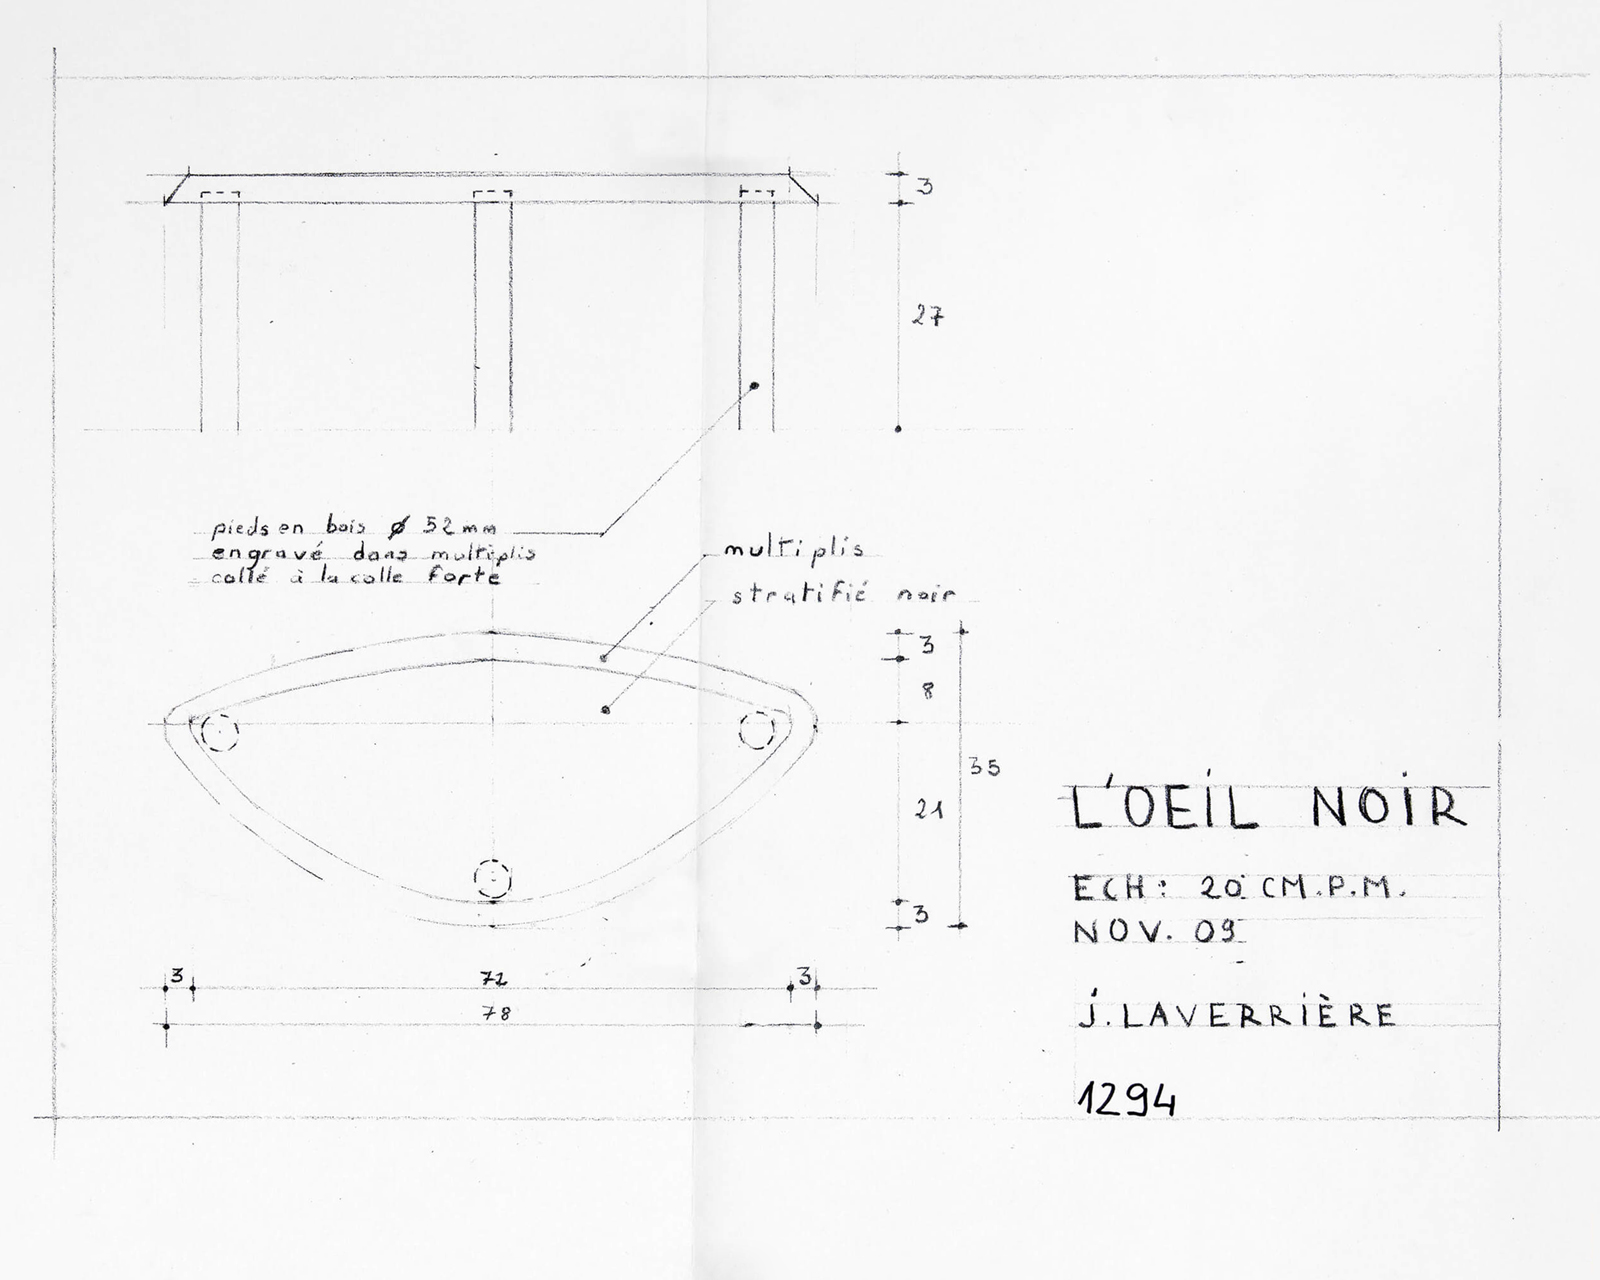 3
27
pieds en bois ø 52 mm
engravé dans multiplis
collé à la colle forte
multiplis
stratifié noir
3
8
35
21
3
3 72 3
78
L'OEiL NOiR
ECH: 20 CM.P.M.
NOV. 09
J.LAVERRiÈRE
1294